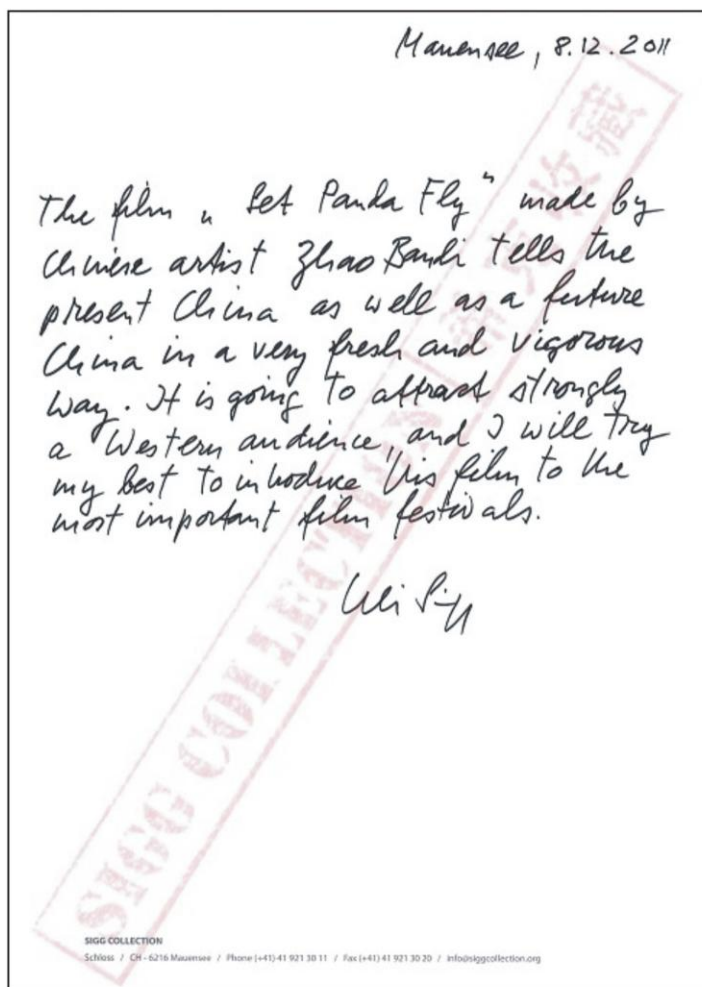 Mauensee, 8.12.2011
The film „Let Panda Fly" made by
Chinese artist Zhao Bandi tells the
present China as well as a future
China in a very fresh and vigorous
way. It is going to attract strongly
a Western audience, and I will try
my best to introduce this film to the
most important film festivals.
Uli Sigg
SIGG COLLECTION 希克收藏
SIGG COLLECTION
Schloss / CH - 6216 Mauensee / Phone (+41)-41 921 30 11 / Fax (+41) 41 921 30 20 / info@siggcollection.org